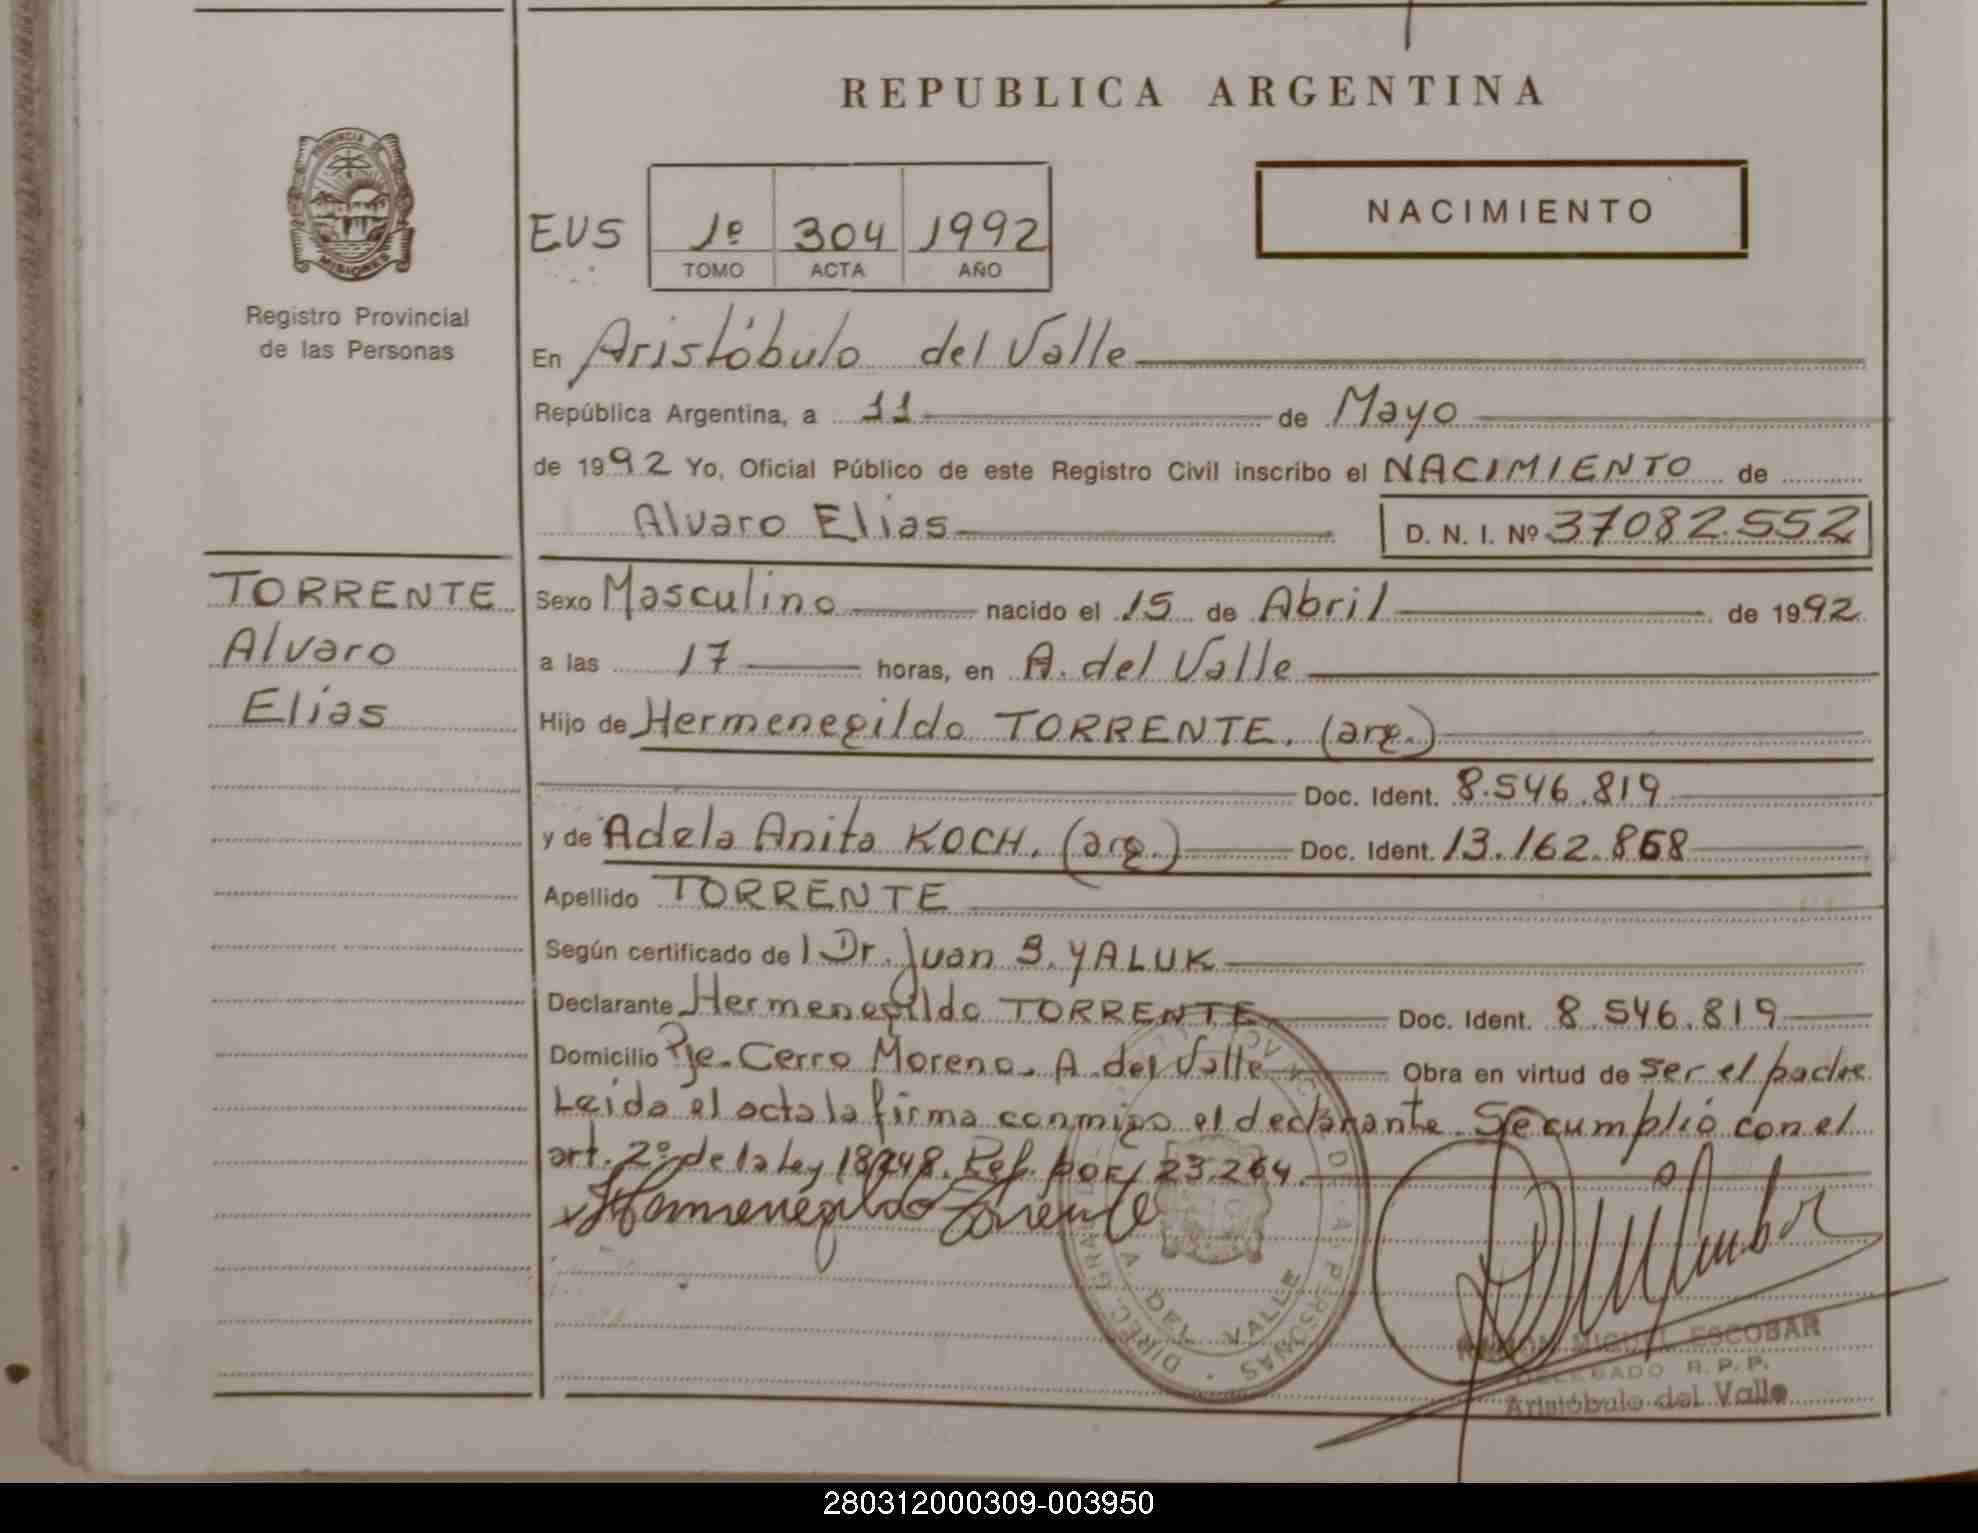 REPUBLICA ARGENTINA
PROVINCIA DE
MISIONES
Registro Provincial
de las Personas
EUS
1º 304 1992
TOMO ACTA AÑO
NACIMIENTO
En Aristóbulo del Valle
República Argentina, a 11 de Mayo
de 1992 Yo, Oficial Público de este Registro Civil inscribo el NACIMIENTO de
Alvaro Elias D. N. I. Nº 37082.552
TORRENTE
Alvaro
Elias
Sexo Masculino nacido el 15 de Abril de 1992
a las 17 horas, en A. del Valle
Hijo de Hermenegildo TORRENTE. (arg.)
Doc. Ident. 8.546.819
y de Adela Anita KOCH. (arg.) Doc. Ident. 13.162.868
Apellido TORRENTE
Según certificado de l Dr. Juan S. YALUK
Declarante Hermenegildo TORRENTE Doc. Ident. 8.546.819
Domicilio Pje. Cerro Moreno. A. del Valle Obra en virtud de ser el padre
Leida el acta la firma conmigo el declarante. Se cumplió con el
art. 2º de la Ley 18248. Ref. por 23.264.
Hermenegildo Torrente
A. DEL VALLE
RAMON MIGUEL ESCOBAR
DELEGADO R. P. P.
Aristóbulo del Valle
280312000309-003950